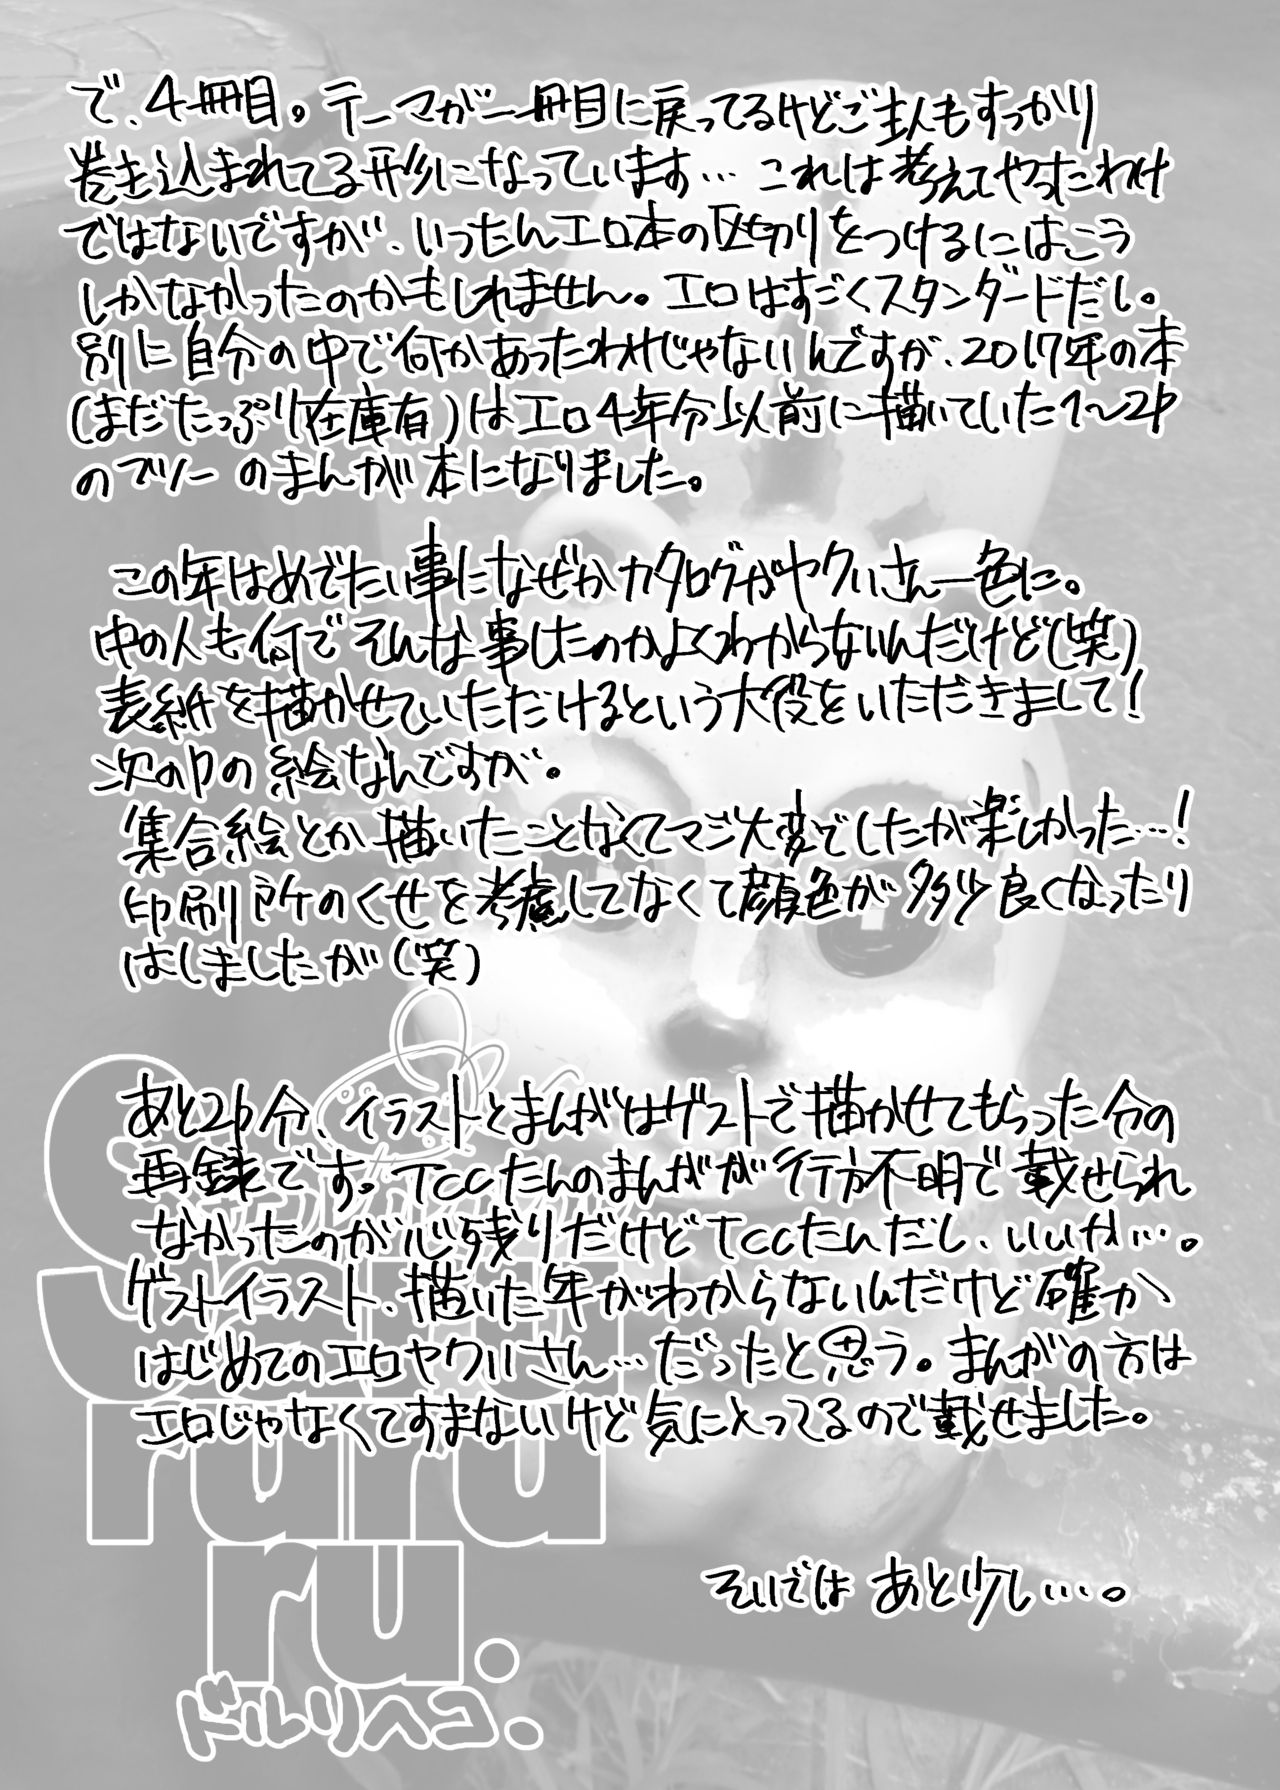 で、4冊目。テーマが一冊目に戻ってるけどご主人もすっかり
巻き込まれてる形になっています… これは考えてやったわけ
ではないですが、いったんエロ本の区切りをつけるにはこう
しかなかったのかもしれません。エロはすごくスタンダードだし。
別に自分の中で何かあったわけじゃないんですが、2017年の本
(まだたっぷり在庫有)はエロ4年分以前に描いていた1〜2p
のマンガのまんが本になりました。
この年はめでたい事になぜかカタログがヤクルさん一色に。
中の人も何でそんな事したのかよくわからないんだけど(笑)
表紙を描かせていただけるという大役をいただきまして!
次のpの絵なんですが。
集合絵とか描いたことなくてマジ大変でしたが楽しかった…!
印刷所のくせを考慮してなくて顔色が多少良くなったり
はしましたが(笑)
あと2p分、イラストとまんがはゲストで描かせてもらった分の
再録です。Tccたんのまんがが行方不明で載せられ
なかったのが心残りだけどTccたんだし、いいか…。
ゲストイラスト、描いた年がわからないんだけど確か
はじめてのエロヤクルさん…だったと思う。まんがの方は
エロじゃなくてすまないけど気にとってるので載せました。
そいでは あと少し…。
ruru
ru.
ドルリヘコ.